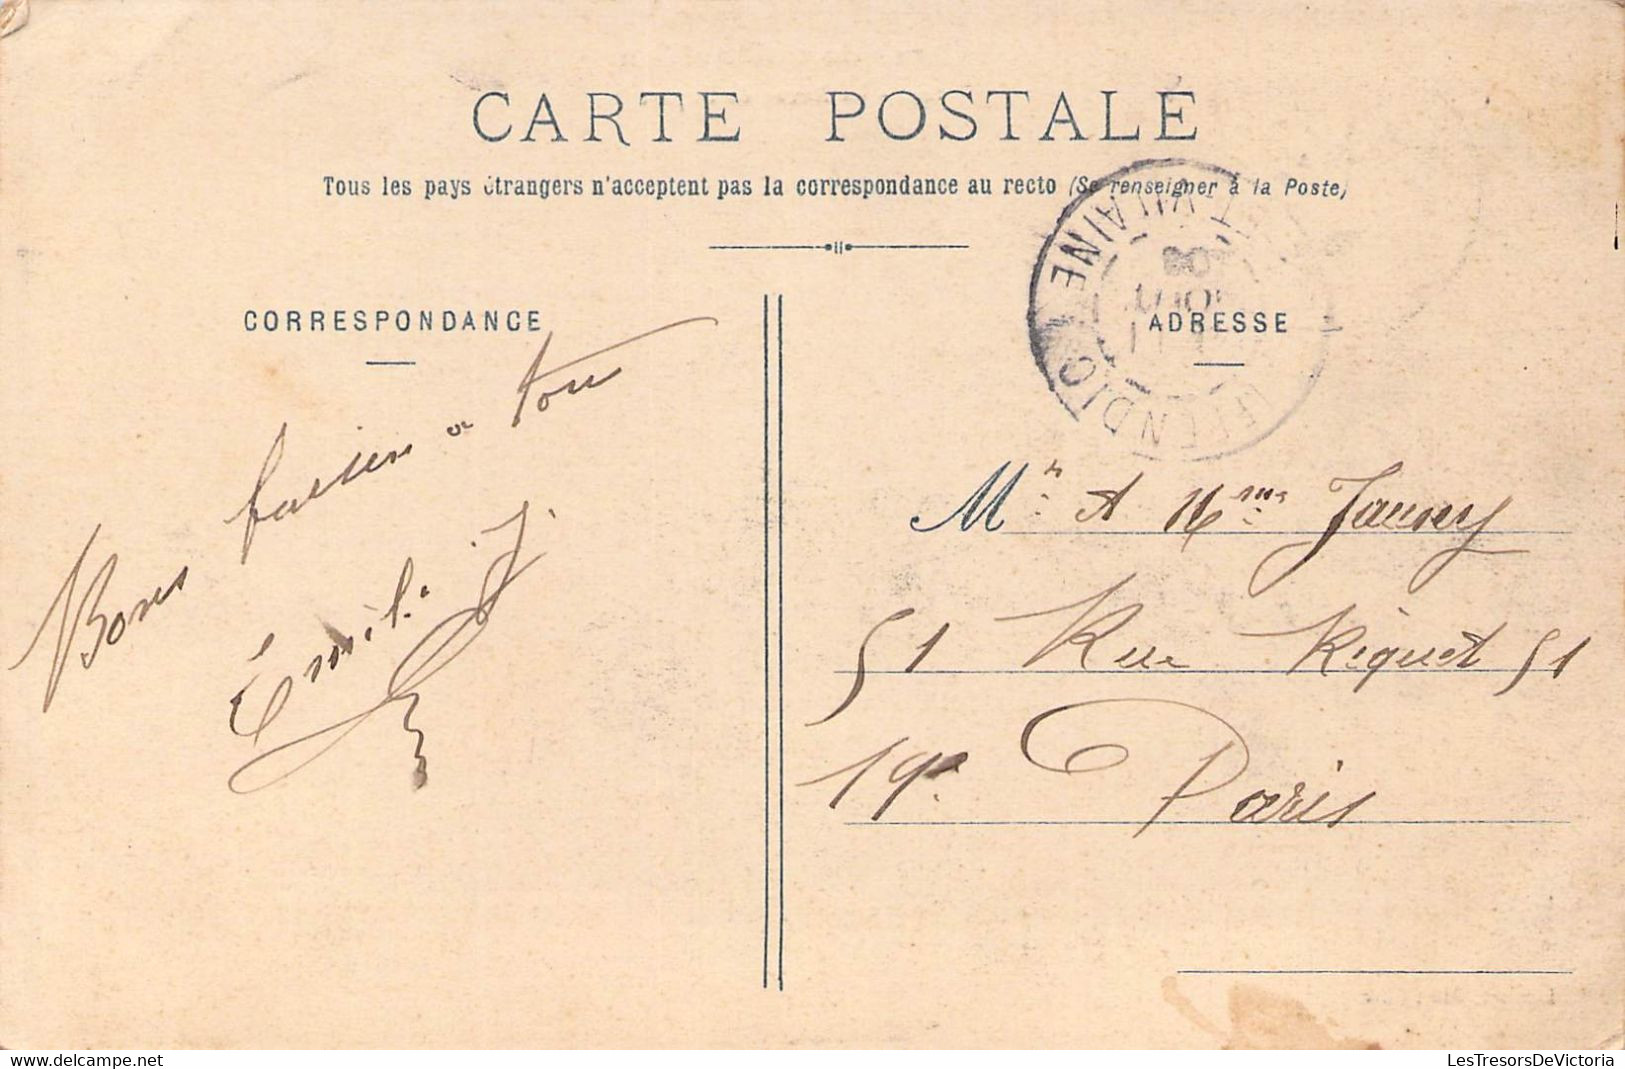 CARTE POSTALE
Tous les pays étrangers n'acceptent pas la correspondance au recto (Se renseigner à la Poste)
CORRESPONDANCE
Bons baisers a tous
Émile J.
ADRESSE
IFFENDIC
ET-VILAINE
08
Mr et Mme Jauny
51 Rue Riquet 51
19e Paris
LesTresorsDeVictoria